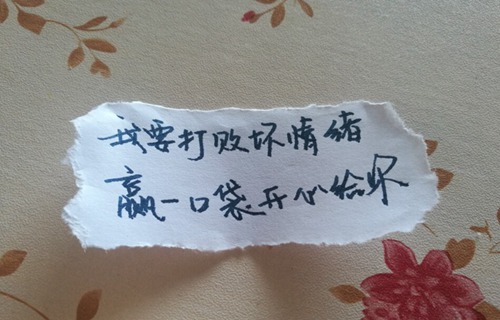 我要打败坏情绪
赢一口袋开心给